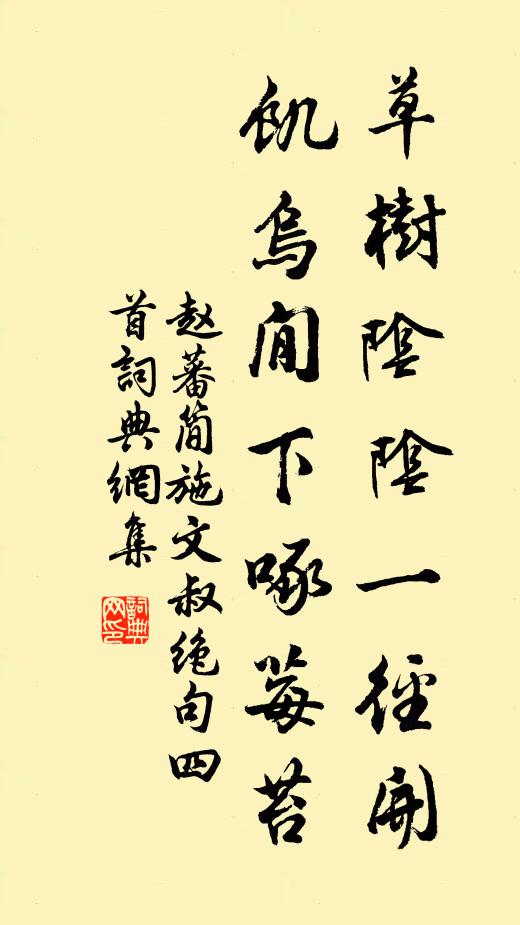 草樹陰陰一徑開
飢烏閒下啄莓苔
赵蕃简施文叔绝句四
首詞典網集
詞典
网印